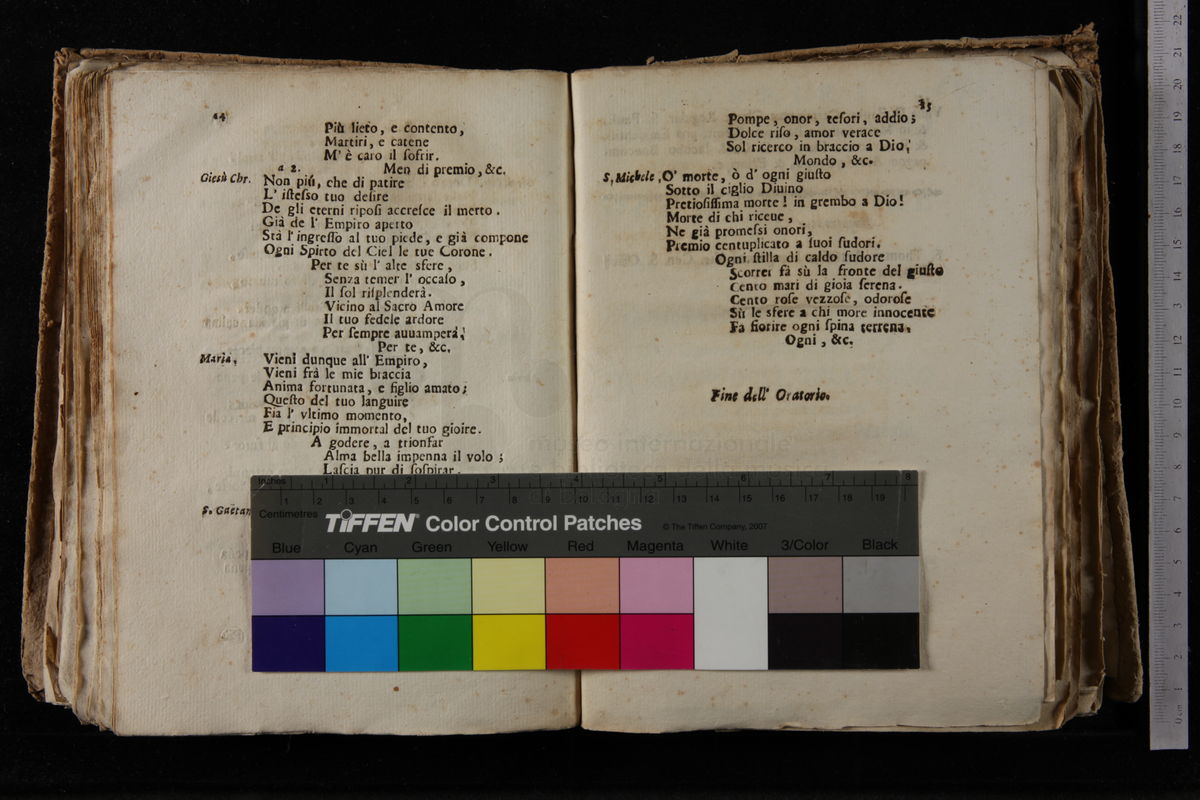 14
Più lieto, e contento,
Martiri, e catene
M' è caro il ſofrir.
a 2. Men di premio, &c.
Giesù Chr. Non piú, che di patire
L' iſteſso tuo deſire
De gli eterni ripoſi accreſce il merto.
Già de l' Empiro aperto
Stà l' ingreſſo al tuo piede, e già compone
Ogni Spirto del Ciel le tue Corone.
Per te sù l' alte sfere,
Senza temer l' occaſo,
Il ſol riſplenderà.
Vicino al Sacro Amore
Il tuo fedele ardore
Per ſempre auuamperà;
Per te, &c.
Maria, Vieni dunque all' Empiro,
Vieni frà le mie braccia
Anima fortunata, e figlio amato;
Queſto del tuo languire
Fia l' vltimo momento,
E principio immortal del tuo gioire.
A godere, a trionfar
Alma bella impenna il volo;
Laſcia pur di ſoſpirar.
S. Gaetan
15
Pompe, onor, teſori, addio;
Dolce riſo, amor verace
Sol ricerco in braccio a Dio;
Mondo, &c.
S. Michele, O' morte, ò d' ogni giuſto
Sotto il ciglio Diuino
Pretioſiſſima morte! in grembo a Dio!
Morte di chi riceue,
Ne già promeſsi onori,
Premio centuplicato a ſuoi ſudori.
Ogni ſtilla di caldo ſudore
Scorrer fà sù la fronte del giuſto
Cento mari di gioia ſerena.
Cento roſe vezzoſe, odoroſe
Sù le sfere a chi more innocente
Fa fiorire ogni ſpina terrena.
Ogni, &c.
Fine dell' Oratorio.
museo internazionale
Inches 1 2 3 4 5 6 7 8
Centimetres 1 2 3 4 5 6 7 8 9 10 11 12 13 14 15 16 17 18 19
TIFFEN Color Control Patches © The Tiffen Company, 2007
Blue Cyan Green Yellow Red Magenta White 3/Color Black
22
21
20
19
18
17
16
15
14
13
12
11
10
9
8
7
6
5
4
3
2
1
0 cm